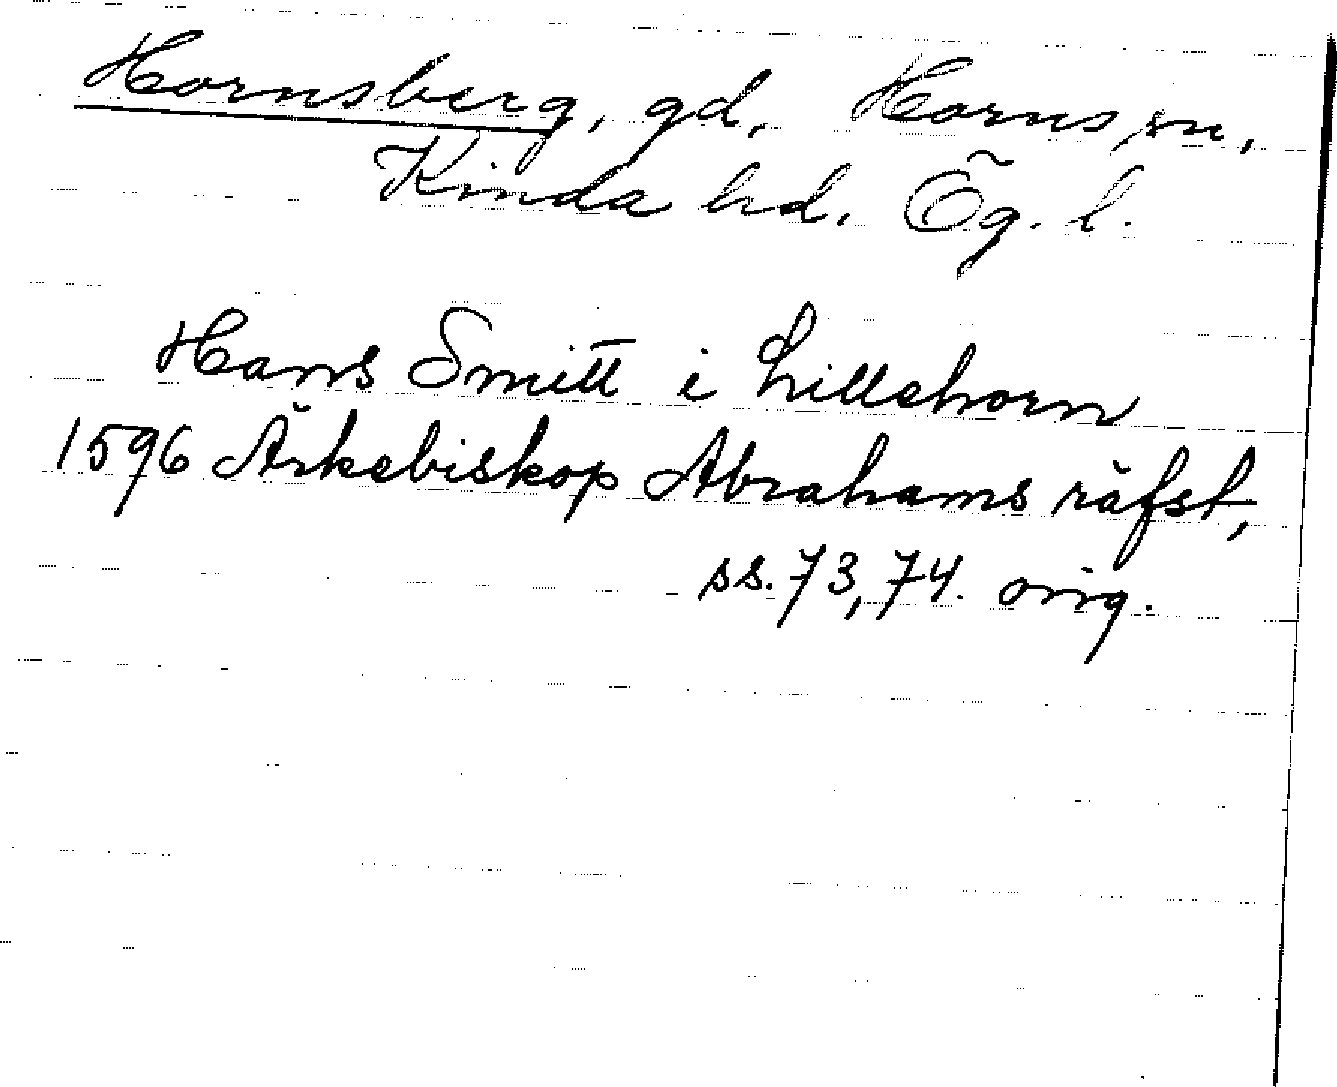 Hornsberg, gd, Horns sn,
Kinda hd. Ög. l.
Hans Smitt i Lillehorn
1596 Ärkebiskop Abrahams räfst,
ss. 73, 74. orig.